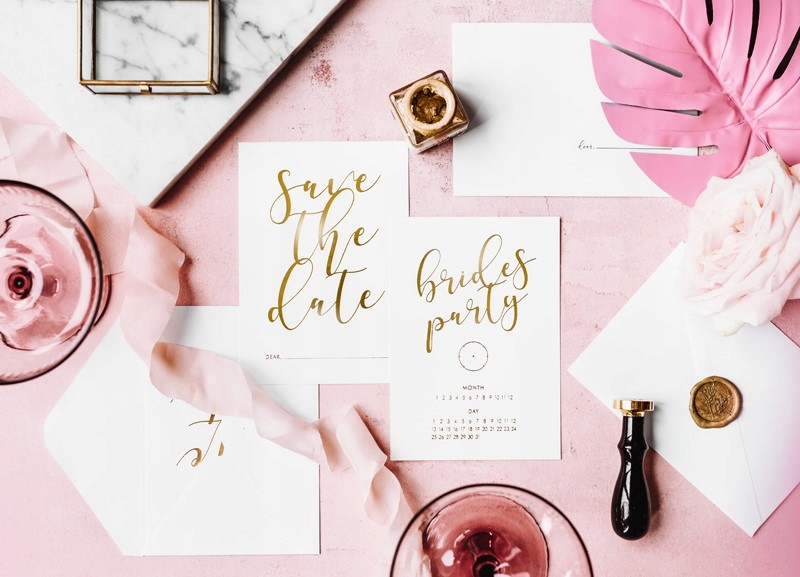 dear
save
the
date
DEAR,
brides
party
MONTH
1 2 3 4 5 6 7 8 9 10 11 12
DAY
1 2 3 4 5 6 7 8 9 10 11 12
13 14 15 16 17 18 19 20 21 22 23 24
25 26 27 28 29 30 31